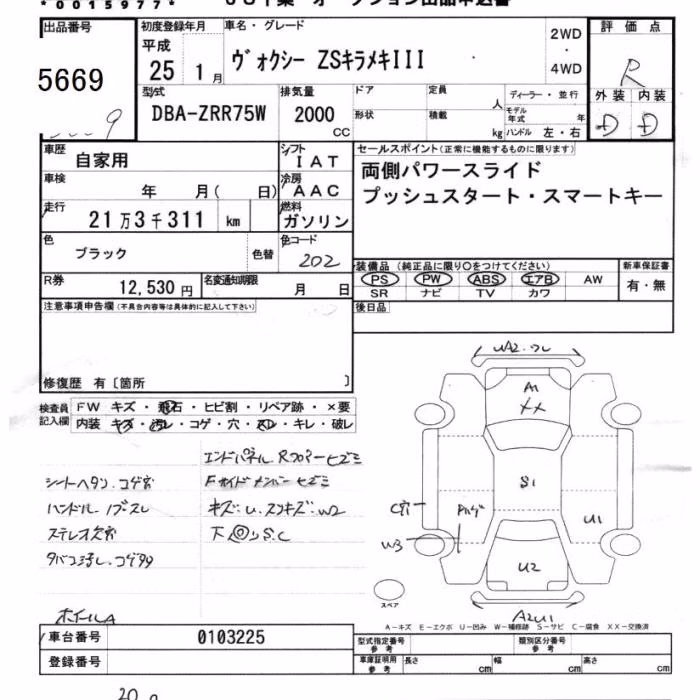 *0015977*
出品番号
5669
9
初度登録年月
平成
25 1月
車名・グレード
ヴォクシー ZSキラメキIII
2WD
・
4WD
評価点
R
外装 内装
D D
型式
DBA-ZRR75W
排気量
2000
CC
ドア
形状
定員
人
積載
kg
ディーラー・並行
モデル年式 年
ハンドル 左・右
車歴
自家用
シフト
IAT
車検
年 月( 日)
冷房
AAC
走行
21万3千311 km
燃料
ガソリン
セールスポイント(正常に機能するものに限ります)
両側パワースライド
プッシュスタート・スマートキー
色
ブラック
色替
色コード
202
装備品 (純正品に限り○をつけてください)
PS PW ABS エアB AW
SR ナビ TV カワ
新車保証書
有・無
R券
12,530円
名変通知期限
月 日
後日品
注意事項申告欄(不具合内容等は具体的に記入して下さい)
修復歴 有〔箇所 〕
検査員記入欄
FW キズ・飛石・ヒビ割・リペア跡・×要
内装 キズ・汚レ・コゲ・穴・スレ・キレ・破レ
エンドパネル Rフロアーヒズミ
シートヘタン、コゲ穴
Fサイドメンバーヒズミ
ハンドル ノブスレ
キズ.U.スリキズ.W2
ステレオ欠品
下回りS.C
タバコ汚レ.コゲ
ホイールA
UA2.
A1
XX
S1
C穴
W3
U1
U2
A2U1
スペア
A-キズ E-エクボ U-凹み W-補修跡 S-サビ C-腐食 XX-交換済
車台番号
0103225
登録番号
型式指定番号
参考
類別区分番号
参考
車庫証明用
参考
長さ cm
幅 cm
高さ cm
20